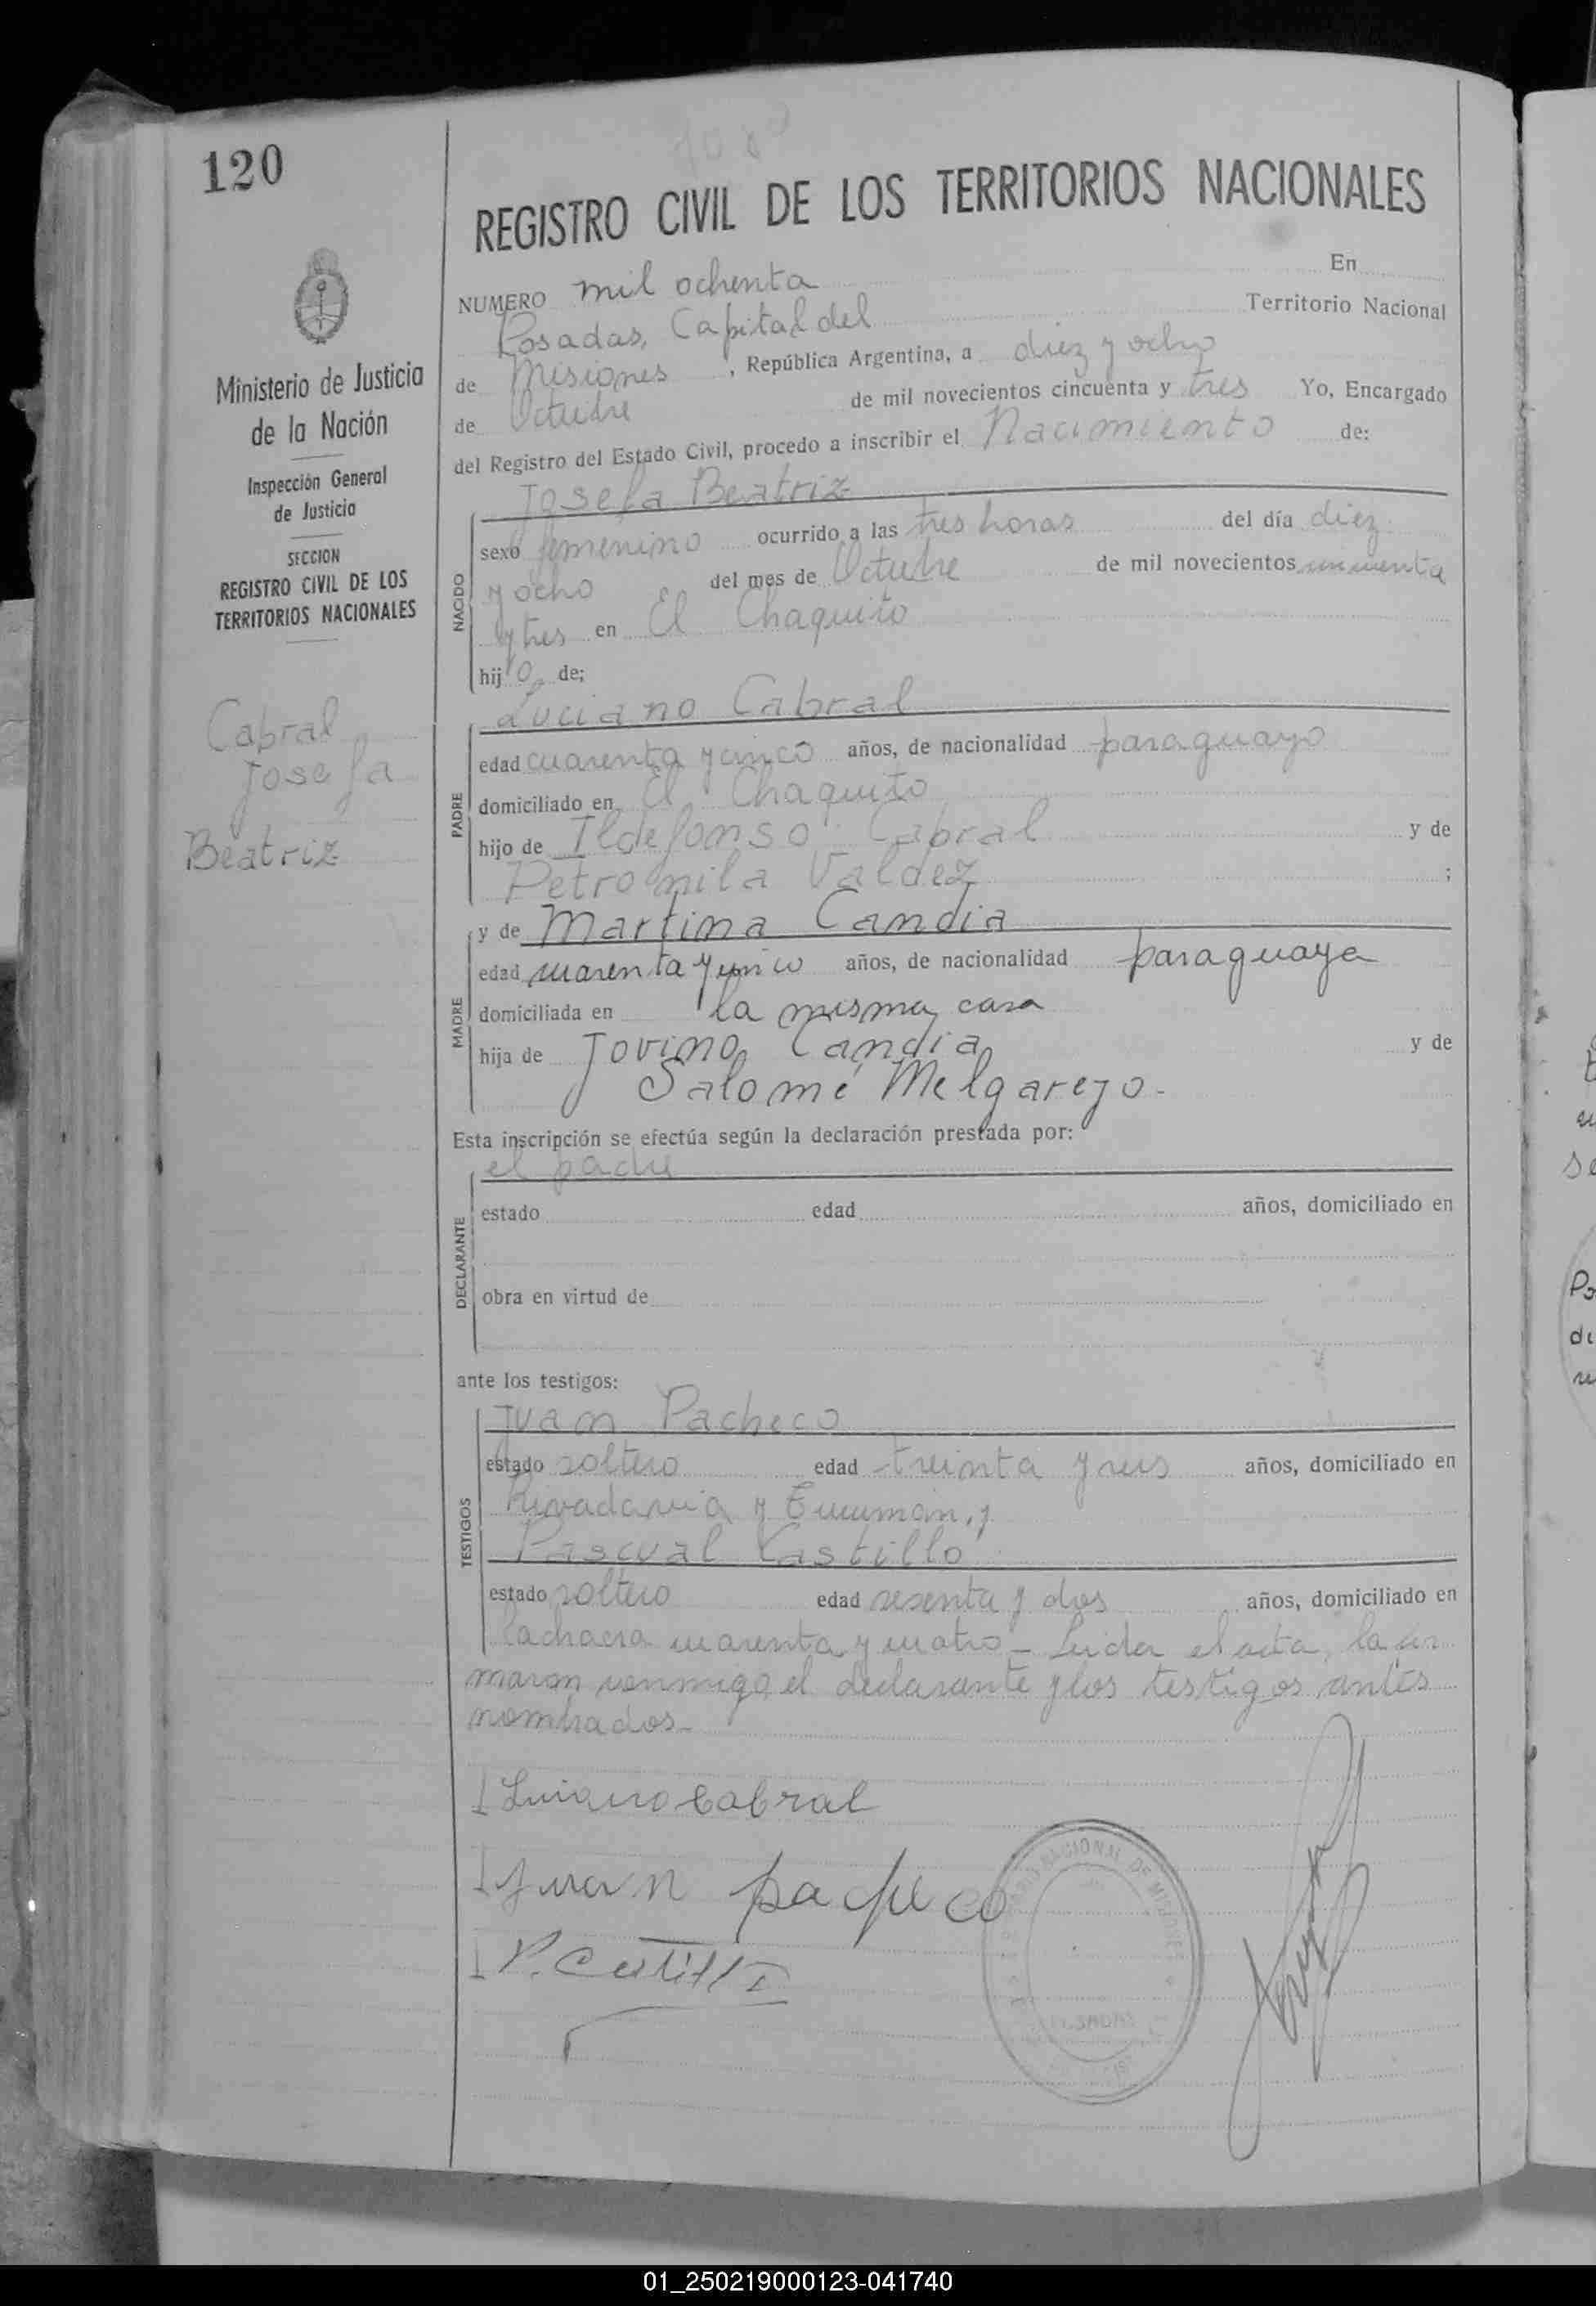 120
1080
REGISTRO CIVIL DE LOS TERRITORIOS NACIONALES
Ministerio de Justicia
de la Nación
Inspección General
de Justicia
SECCION
REGISTRO CIVIL DE LOS
TERRITORIOS NACIONALES
Cabral
Josefa
Beatriz
NUMERO mil ochenta En
Posadas, Capital del Territorio Nacional
de Misiones, República Argentina, a diez y ocho
de Octubre de mil novecientos cincuenta y tres Yo, Encargado
del Registro del Estado Civil, procedo a inscribir el Nacimiento de:
NACIDO
Josefa Beatriz
sexo femenino ocurrido a las tres horas del día diez
y ocho del mes de Octubre de mil novecientos cincuenta
y tres en El Chaquito
hijo de;
PADRE
Luciano Cabral
edad cuarenta y cinco años, de nacionalidad paraguayo
domiciliado en El Chaquito
hijo de Ildefonso Cabral y de
Petronila Valdez ;
MADRE
y de Martina Candia
edad cuarenta y cinco años, de nacionalidad paraguaya
domiciliada en la misma casa
hija de Jovino Candia y de
Salomé Melgarejo.
Esta inscripción se efectúa según la declaración prestada por:
DECLARANTE
el padre
estado edad años, domiciliado en
obra en virtud de
ante los testigos:
TESTIGOS
Juan Pacheco
estado soltero edad treinta y seis años, domiciliado en
Rivadavia y Tucumán, y
Pascual Castillo
estado soltero edad sesenta y dos años, domiciliado en
la chacra cuarenta y cuatro - Leida el acta, la fir
maron conmigo, el declarante y los testigos antes
nombrados.-
Luciano Cabral
Juan pacheco
P. Castillo
NACIONAL DE MISIONES
POSADAS
01_250219000123-041740